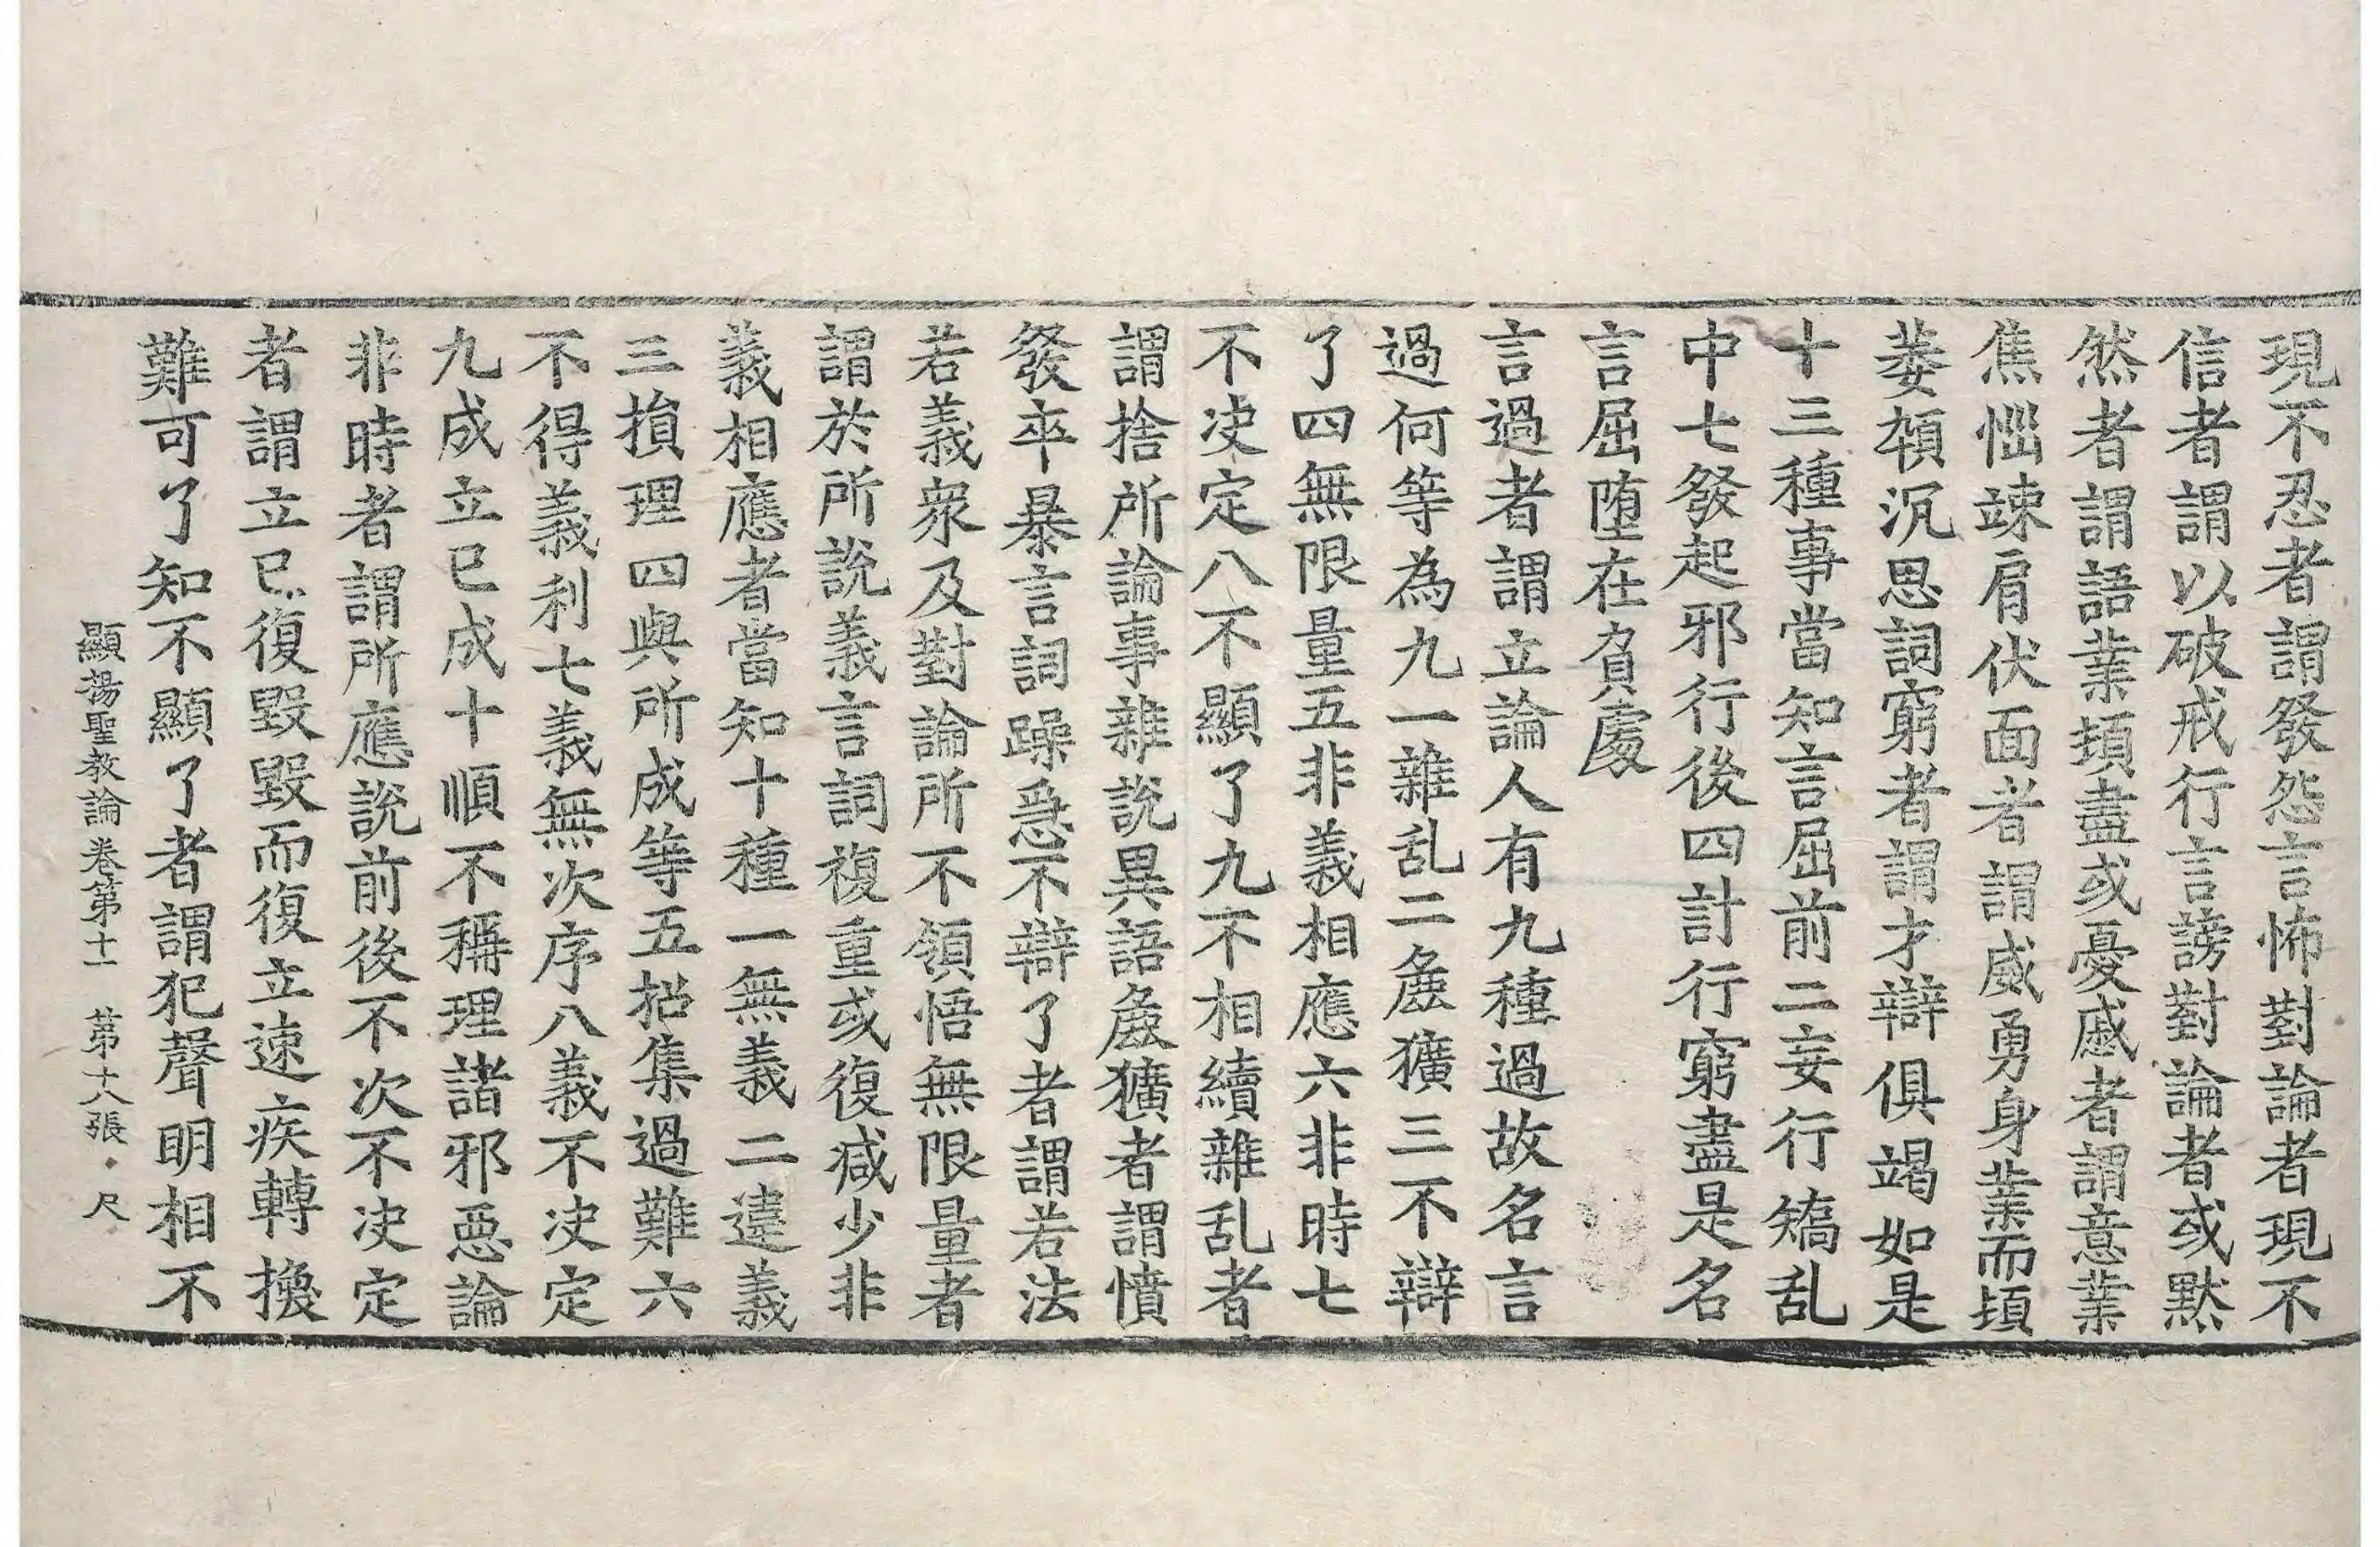 現不忍者謂發怨言怖對論者現不
信者謂以破戒行言謗對論者或黙
然者謂語業頓盡或憂慼者謂意業
焦惱竦肩伏面者謂威勇身業而頓
萎頓沉思詞窮者謂才辯俱竭如是
十三種事當知言屈前二妄行矯乱
中七發起邪行後四計行窮盡是名
言屈堕在負處
言過者謂立論人有九種過故名言
過何等為九一雜乱二麁獷三不辯
了四無限量五非義相應六非時七
不决定八不顯了九不相續雜乱者
謂捨所論事雜說異語麁獷者謂憤
發卒暴言詞躁急不辯了者謂若法
若義衆及對論所不領悟無限量者
謂於所說義言詞複重或復减少非
義相應者當知十種一無義二違義
三損理四與所成等五招集過難六
不得義利七義無次序八義不决定
九成立已成十順不稱理諸邪惡論
非時者謂所應說前後不次不决定
者謂立已復毀毀而復立速疾轉換
難可了知不顯了者謂犯聲明相不
顯揚聖教論卷第十一 第十八張 尺